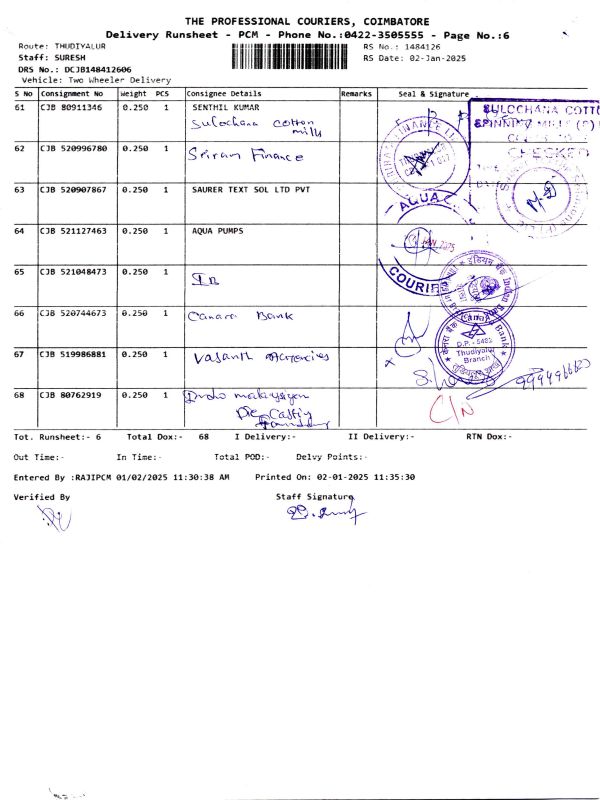 THE PROFESSIONAL COURIERS, COIMBATORE
Delivery Runsheet - PCM - Phone No.:0422-3505555 - Page No.:6
Route: THUDIYALUR RS No.: 1484126
Staff: SURESH RS Date: 02-Jan-2025
DRS No.: DCJB148412606
Vehicle: Two Wheeler Delivery
S No Consignment No Weight PCS Consignee Details Remarks Seal & Signature
61 CJB 80911346 0.250 1 SENTHIL KUMAR
Sulochana cotton
mills
SULOCHANA COTTO
SPINNING MILLS (P)
CHECKED
62 CJB 520996780 0.250 1 Sriram Finance
63 CJB 520907867 0.250 1 SAURER TEXT SOL LTD PVT
AQUA
64 CJB 521127463 0.250 1 AQUA PUMPS
JAN 2025
COURIE
65 CJB 521048473 0.250 1 IB
इंडियन बैंक Indian
66 CJB 520744673 0.250 1 Canara Bank
केनरा बैंक Canara Bank
D.P. - 5482
Thudiyalur
Branch
67 CJB 519986881 0.250 1 Vasanth Agencies
68 CJB 80762919 0.250 1 Indo malaysiyan
Die Casting
C/N
Tot. Runsheet:- 6 Total Dox:- 68 I Delivery:- II Delivery:- RTN Dox:-
Out Time:- In Time:- Total POD:- Delvy Points:-
Entered By :RAJIPCM 01/02/2025 11:30:38 AM Printed On: 02-01-2025 11:35:30
Verified By Staff Signature